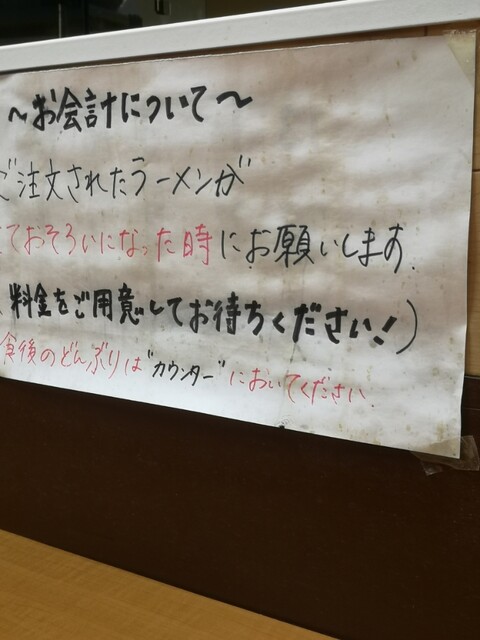 ～お会計について～
ご注文されたラーメンが
ておそろいになった時にお願いします.
料金をご用意してお待ちください!)
食後のどんぶりは"カウンター"においてください